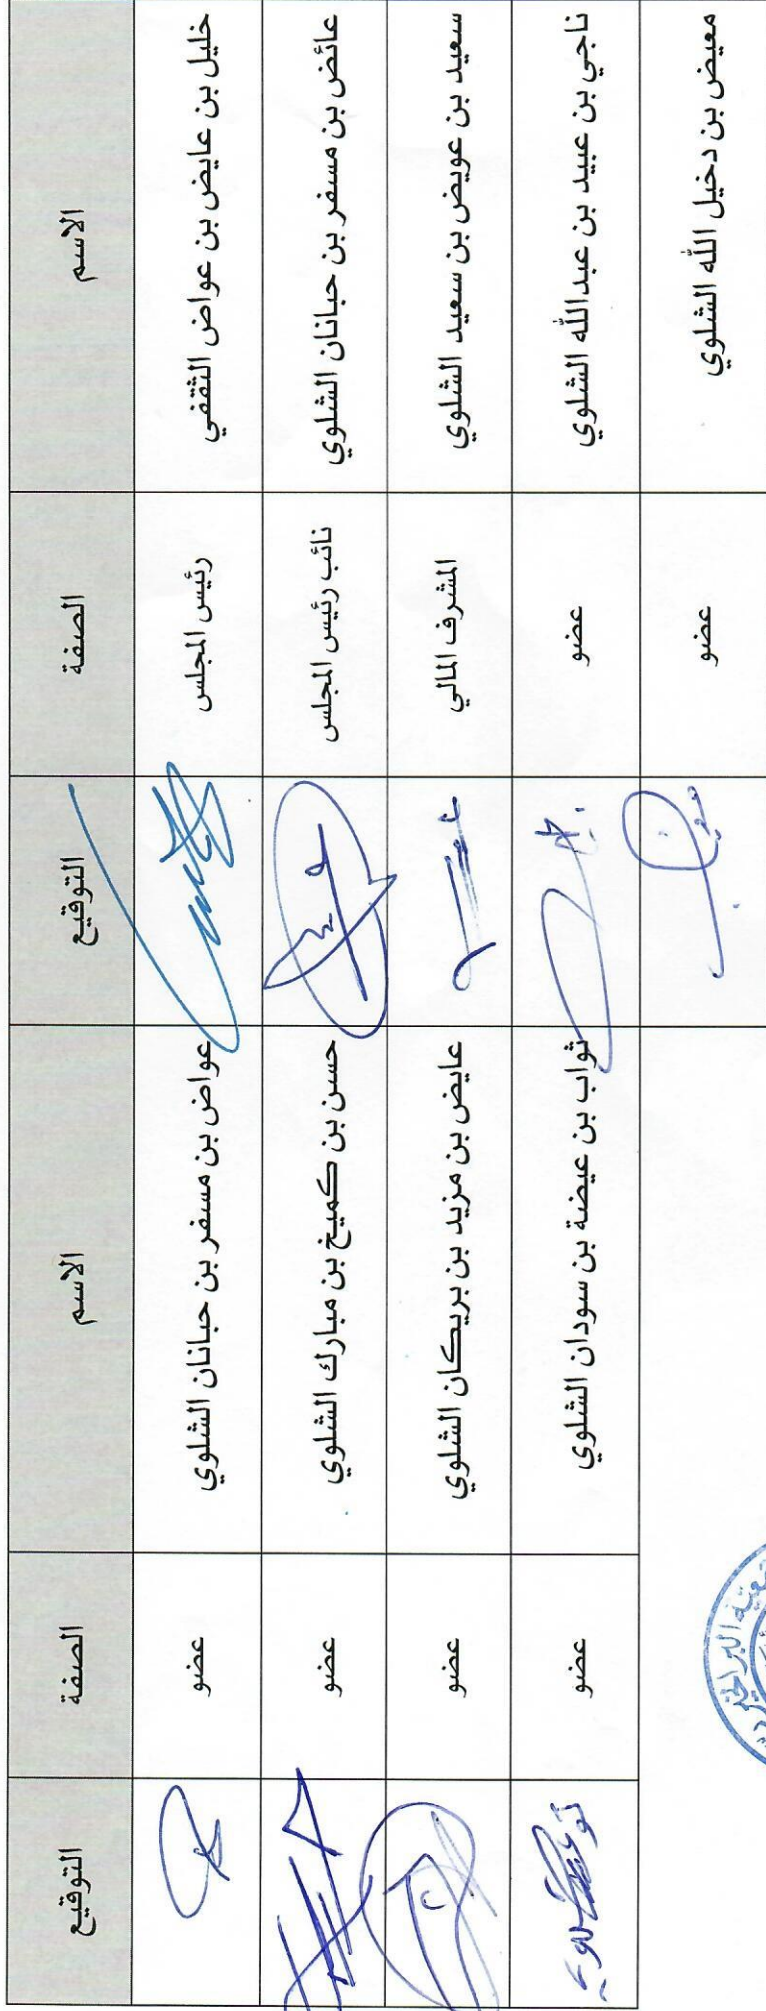 الاسم الصفة التوقيع الاسم الصفة التوقيع
خليل بن عايض بن عواض الثقفي رئيس المجلس عواض بن مسفر بن حبانان الشلوي عضو
عائض بن مسفر بن حبانان الشلوي نائب رئيس المجلس حسن بن كميخ بن مبارك الشلوي عضو
سعيد بن عويض بن سعيد الشلوي المشرف المالي عايض بن مزيد بن بريكان الشلوي عضو
ناجي بن عبيد بن عبدالله الشلوي عضو ثواب بن عيضة بن سودان الشلوي عضو
معيض بن دخيل الله الشلوي عضو